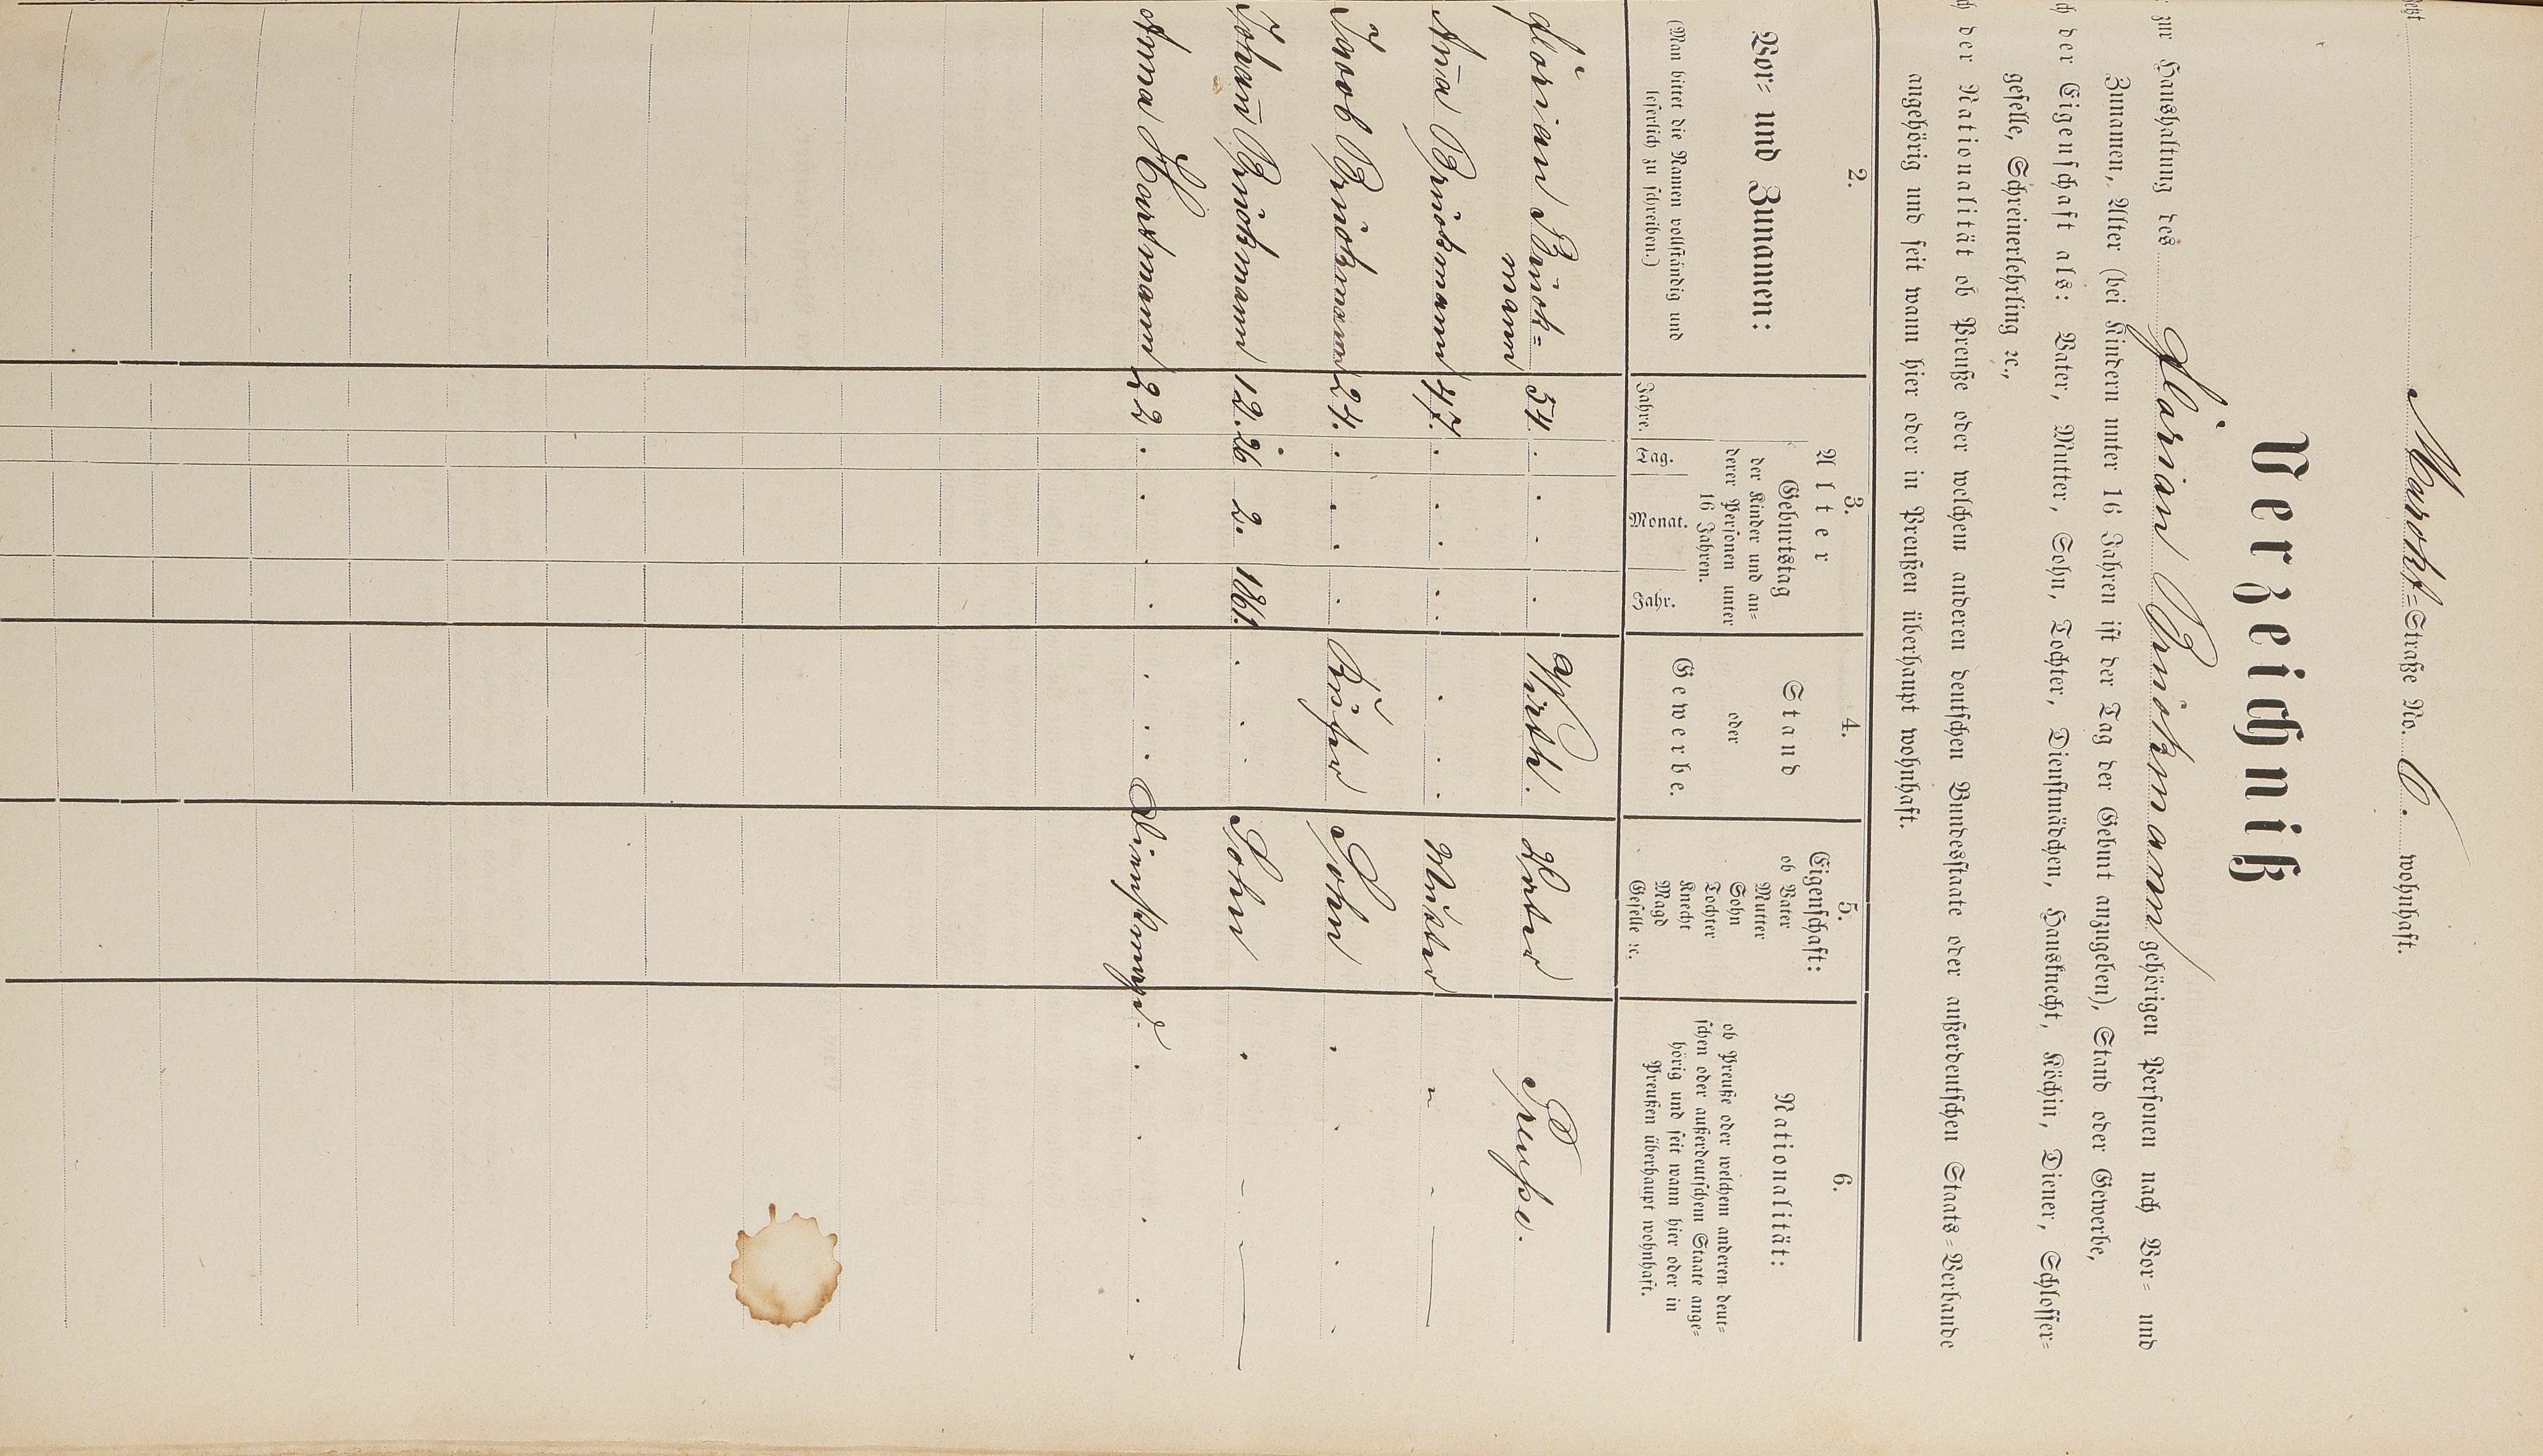 jetzt Markt=Straße No. 6. wohnhaft.
Verzeichniß
zur Haushaltung des Florian Brickmann gehörigen Personen nach Vor= und
Zunamen, Alter (bei Kindern unter 16 Jahren ist der Tag der Geburt anzugeben), Stand oder Gewerbe,
ch der Eigenschaft als: Vater, Mutter, Sohn, Tochter, Dienstmädchen, Hausknecht, Köchin, Diener, Schlosser=
geselle, Schreinerlehrling ꝛc.,
ch der Nationalität ob Preuße oder welchem anderen deutschen Bundesstaate oder außerdeutschen Staats=Verbande
angehörig und seit wann hier oder in Preußen überhaupt wohnhaft.
2. 3. 4. 5. 6.
Vor= und Zunamen:
(Man bittet die Namen vollständig und
leserlich zu schreiben.)
Alter
Geburtstag
der Kinder und an=
derer Personen unter
16 Jahren.
Jahre. Tag. Monat. Jahr.
Stand
oder
Gewerbe.
Eigenschaft:
ob Vater
Mutter
Sohn
Tochter
Knecht
Magd
Geselle ꝛc.
Nationalität:
ob Preuße oder welchem anderen deut=
schen oder außerdeutschem Staate ange=
hörig und seit wann hier oder in
Preußen überhaupt wohnhaft.
Florian Brick= 54. Wirth. Vater Preuße.
mann
Aña Brickmann 47. Mutter "
Jacob Brickmann 24. Küfer Sohn
Johañ Brickmann 12. 26 2. 1861. Sohn
Anna Hartmann 22 Dienstmagd.